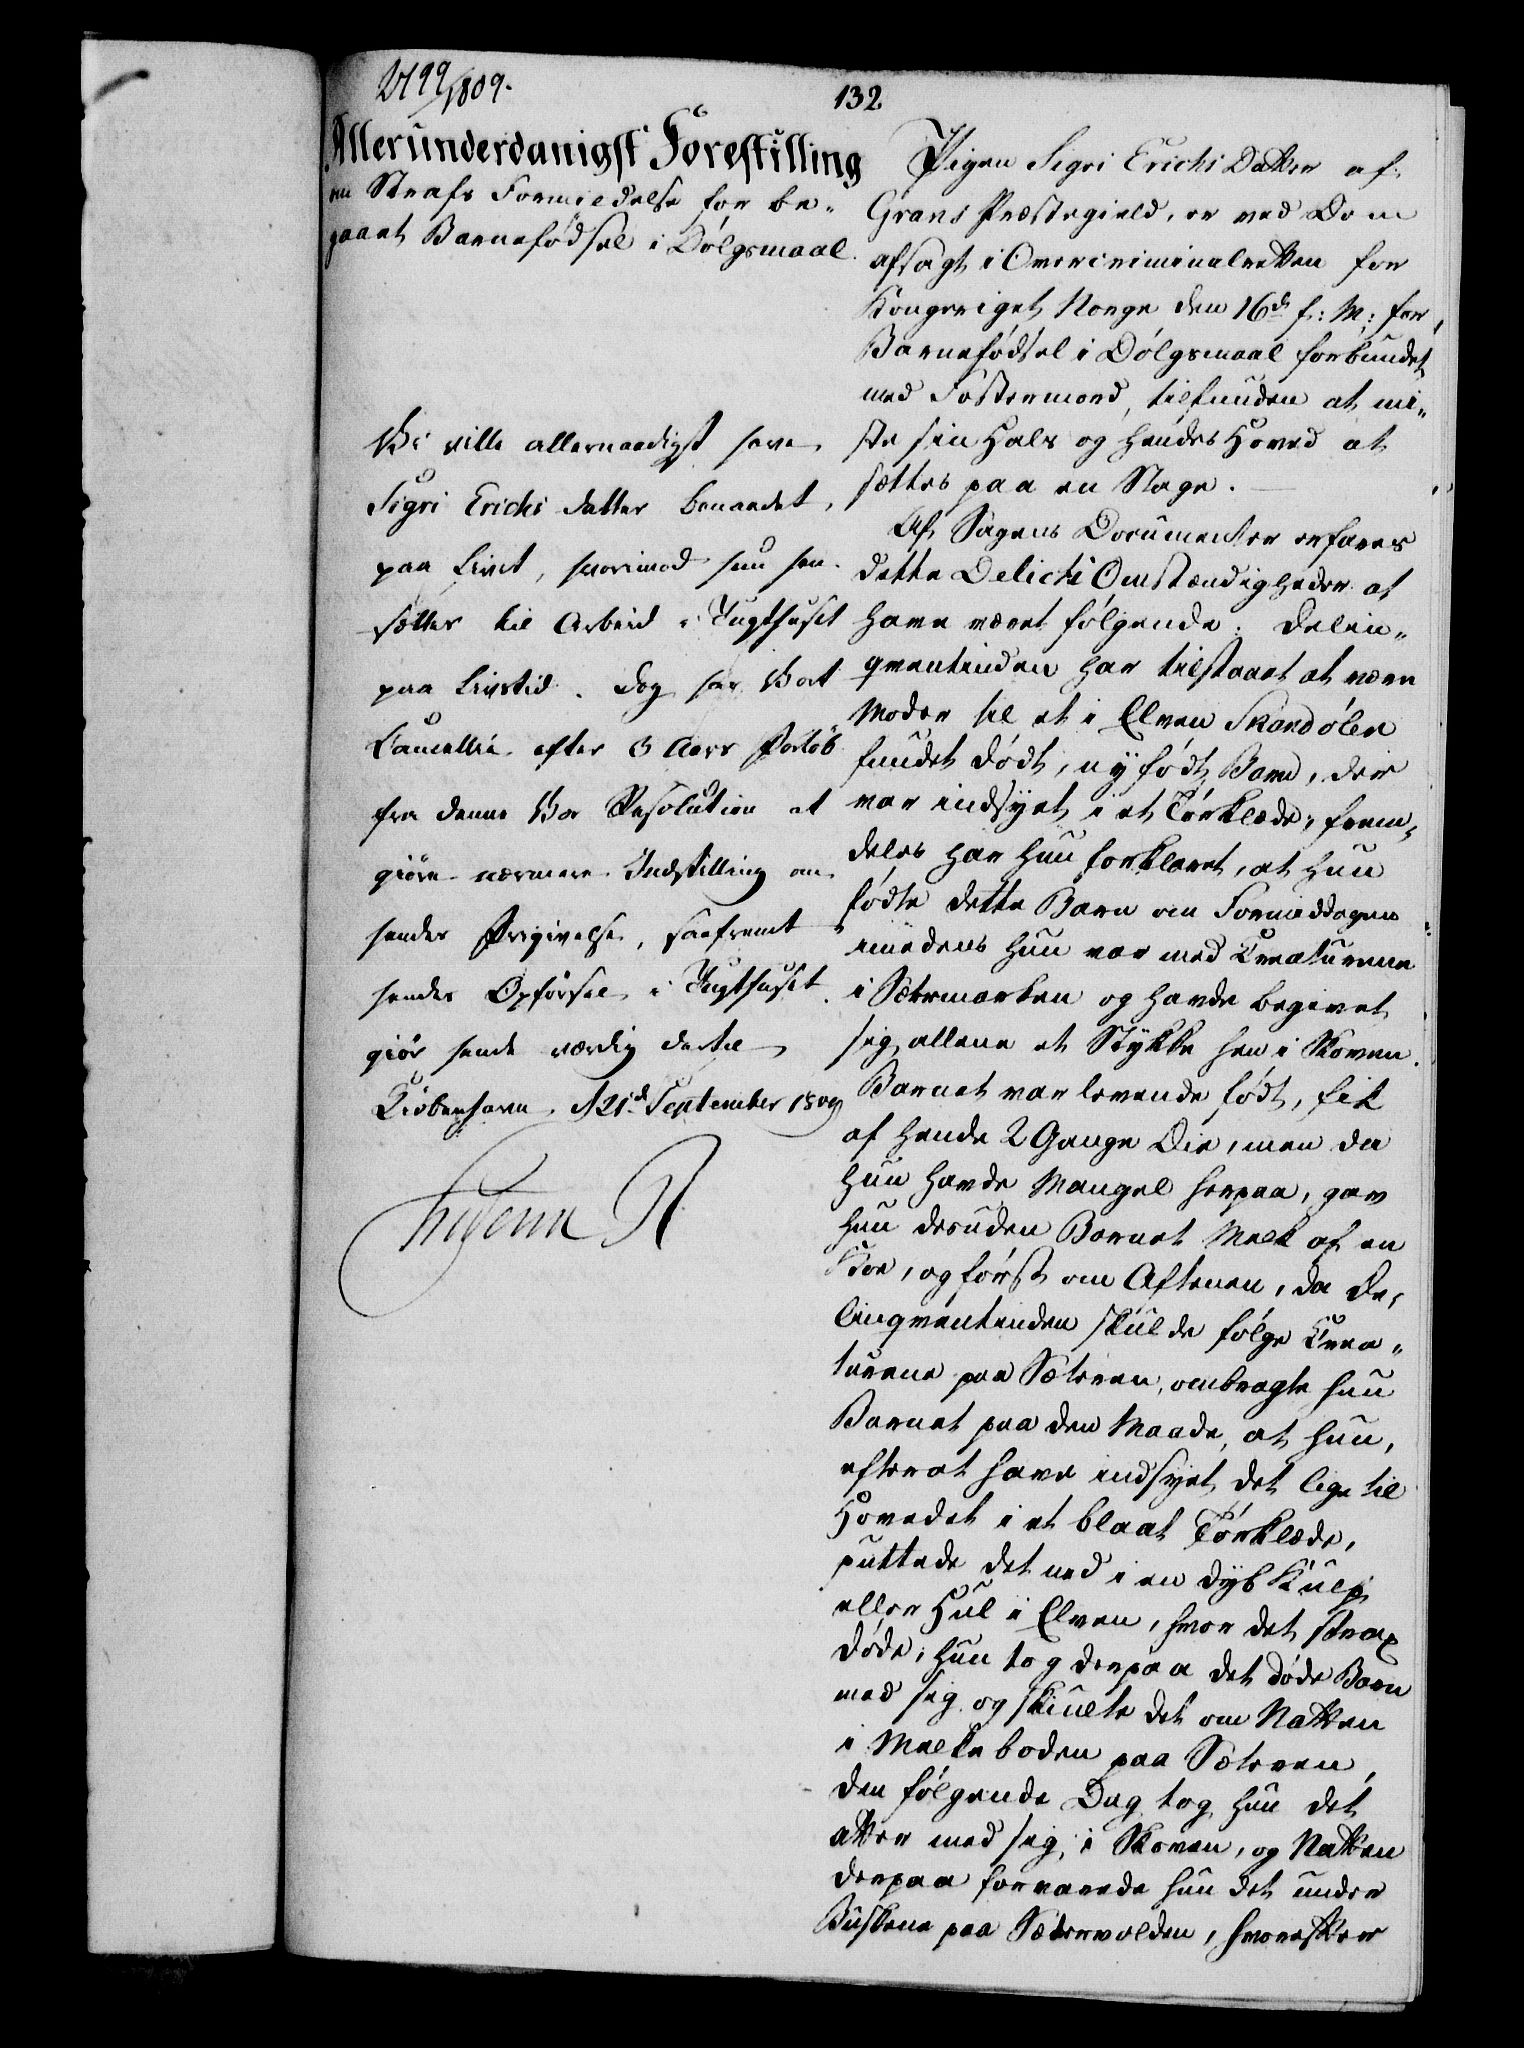 2199/1809.
132
Allerunderdanigst Forestilling
om Strafs Formildelse for be-
gaaet Barnefødsel i Dølgsmaal.
Vi ville allernaadigst have
Sigri Erichsdatter benaadet
paa Livet, hvorimod hun hen-
sættes til Arbeid i Tugthuset
paa Livstid. Dog har Vort
Cancellie efter 3 Aars Forløb
fra denne Vor Resolution at
giøre nærmere Indstilling om
hendes Frigivelse, saafremt
hendes Opførsel i Tugthuset
giør hende værdig dertil
Kiøbenhavn d 21d September 1809
Friderich R
Pigen Sigri Erichs Datter af
Grans Præstegield, er ved Dom
afsagt i Overcriminalretten for
Kongeriget Norge den 16d f: M: for
Barnefødsel i Dølgsmaal forbundet
med Fostermord, tilfunden at mi-
ste sin Hals og hendes Hoved at
sættes paa en Stage.
Af Sagens Documenter erfares
dette Delicti Omstændigheder at
have været følgende: Delin-
qventinden har tilstaaet at være
Moder til et i Elven Skardølen
fundet dødt, nyfødt Barn, der
var indsyet i et Tørklæde, frem-
deles har hun forklaret, at hun
fødte dette Barn om Formiddagen
imedens hun var med Creaturene
i Sætermarken og havde begivet
sig allene et Stykke hen i Skoven.
Barnet var levende født, fik
af hende 2 Gange Die, men da
hun havde Mangel herpaa, gav
hun desuden Barnet Melk af en
Koe, og først om Aftenen, da De-
linqventinden skulde følge Crea-
turene paa Sæteren, ombragte hun
Barnet paa den Maade, at hun,
efterat have indsyet det lige til
Hovedet i et blaat Tørklæde,
puttede det ned i en dyb Kulp
eller Hul i Elven, hvor det strax
døde; hun tog derpaa det døde Barn
med sig og skiulte det om Natten
i Melkeboden paa Sæteren,
den følgende Dag tog hun det
atter med sig i Skoven, og Natten
derpaa forvarede hun det under
Buskene paa Sætervolden, hvorefter